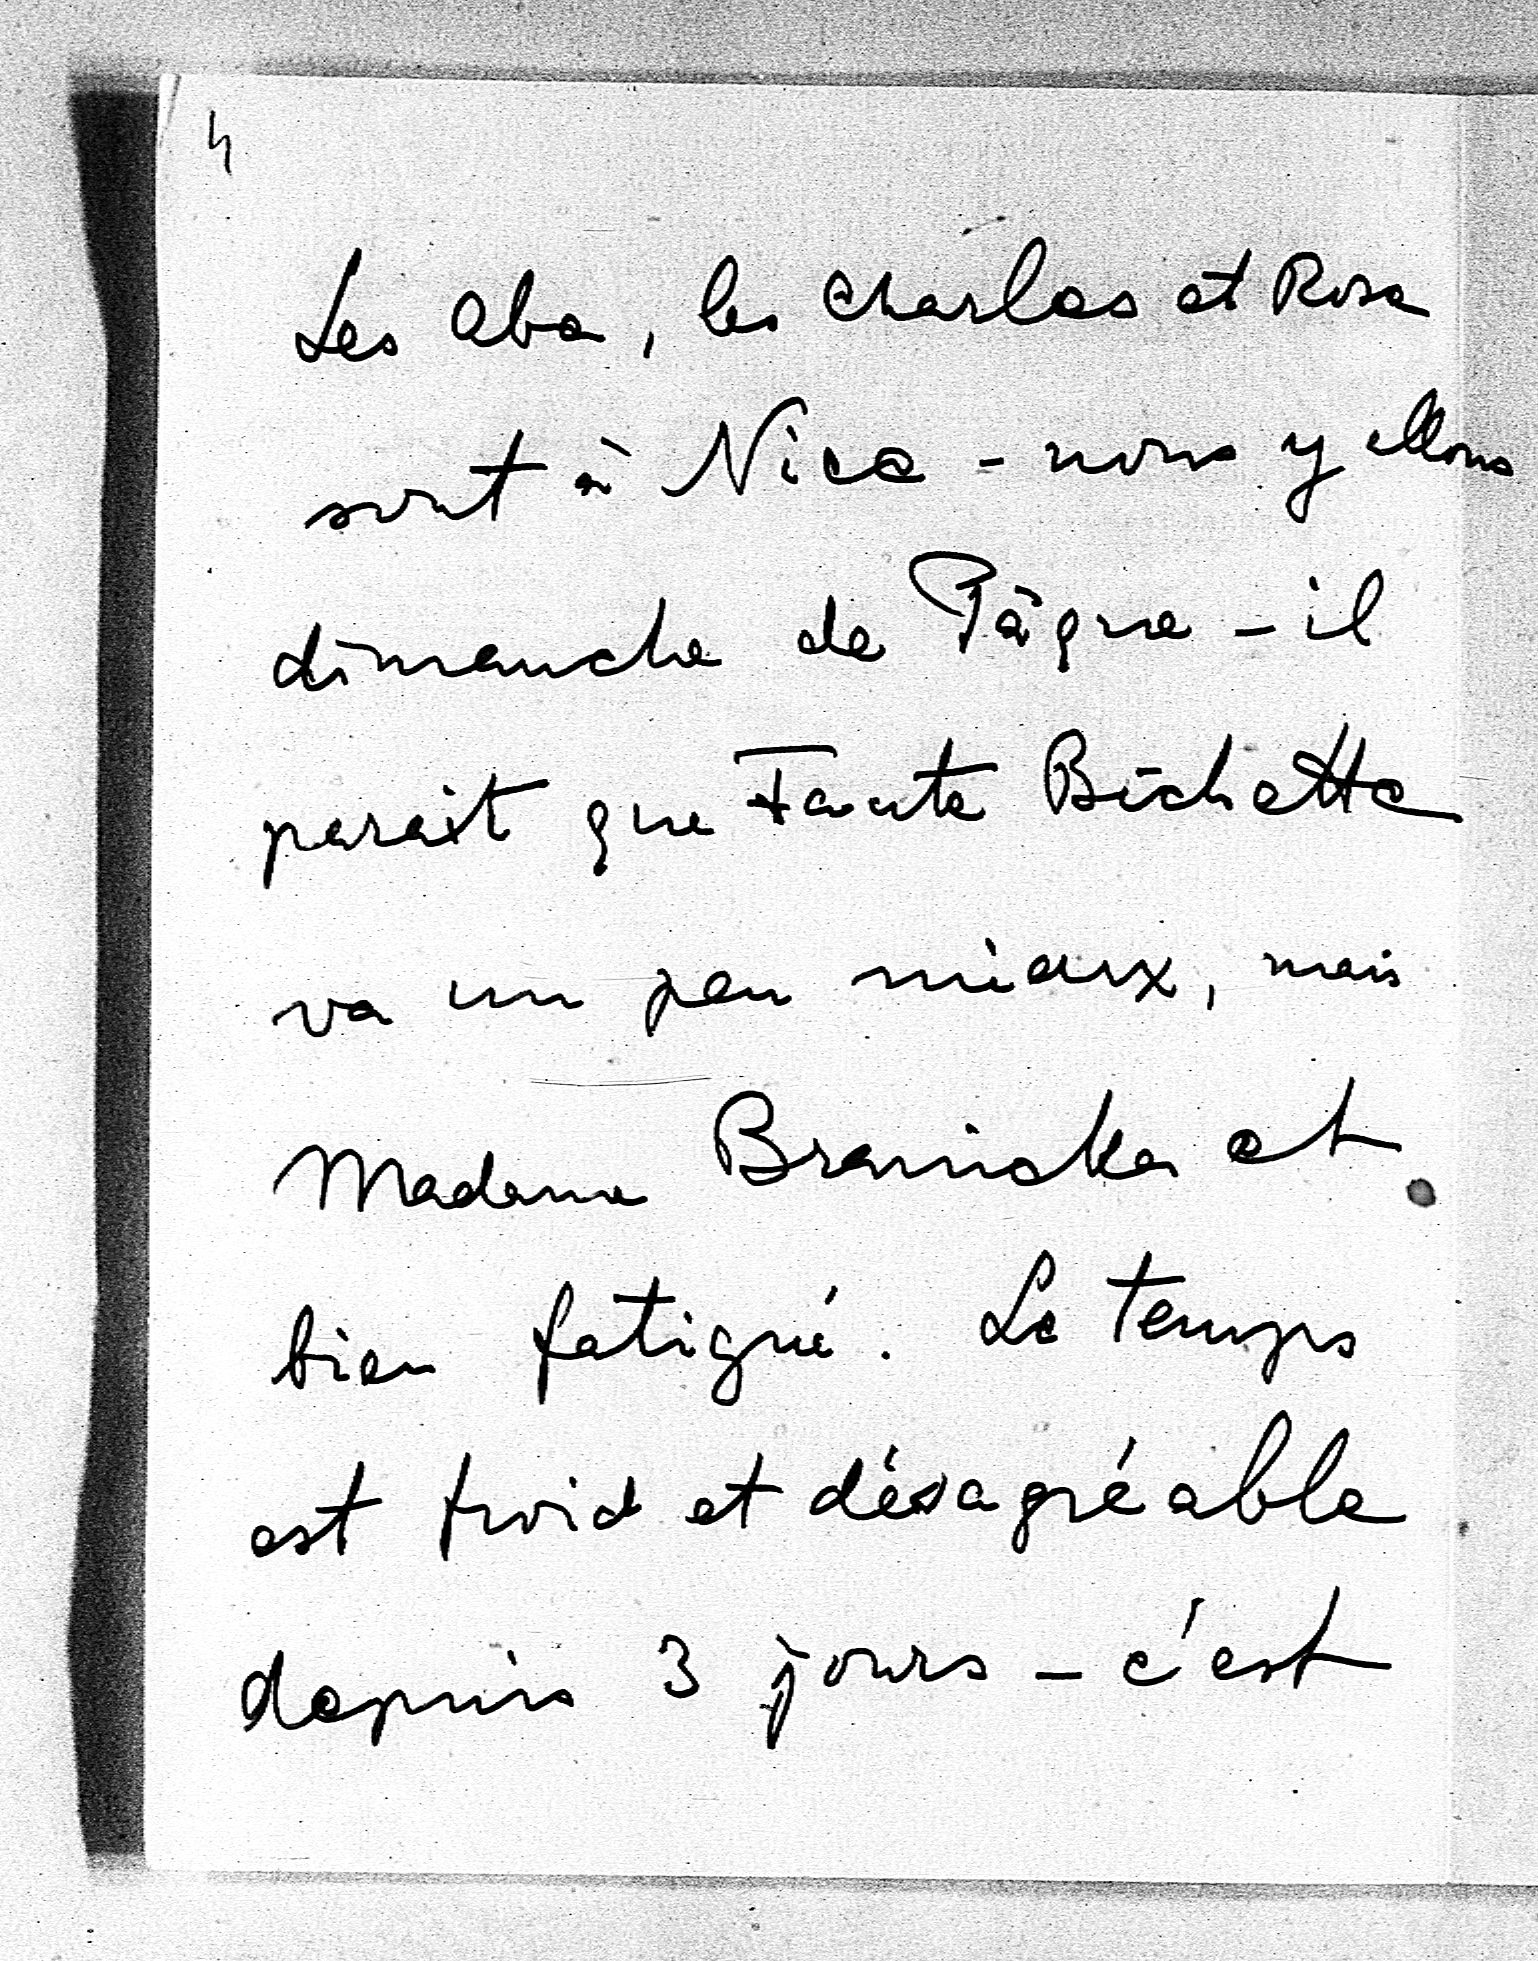 4
Les Aba, les Charles et Rosa
sont à Nice - nous y allons
dimanche de Pâque - il
parait que Tante Bichette
va un peu mieux, mais
Madame Braniska et
bien fatigué. Le temps
est froid et désagréable
depuis 3 jours - c'est